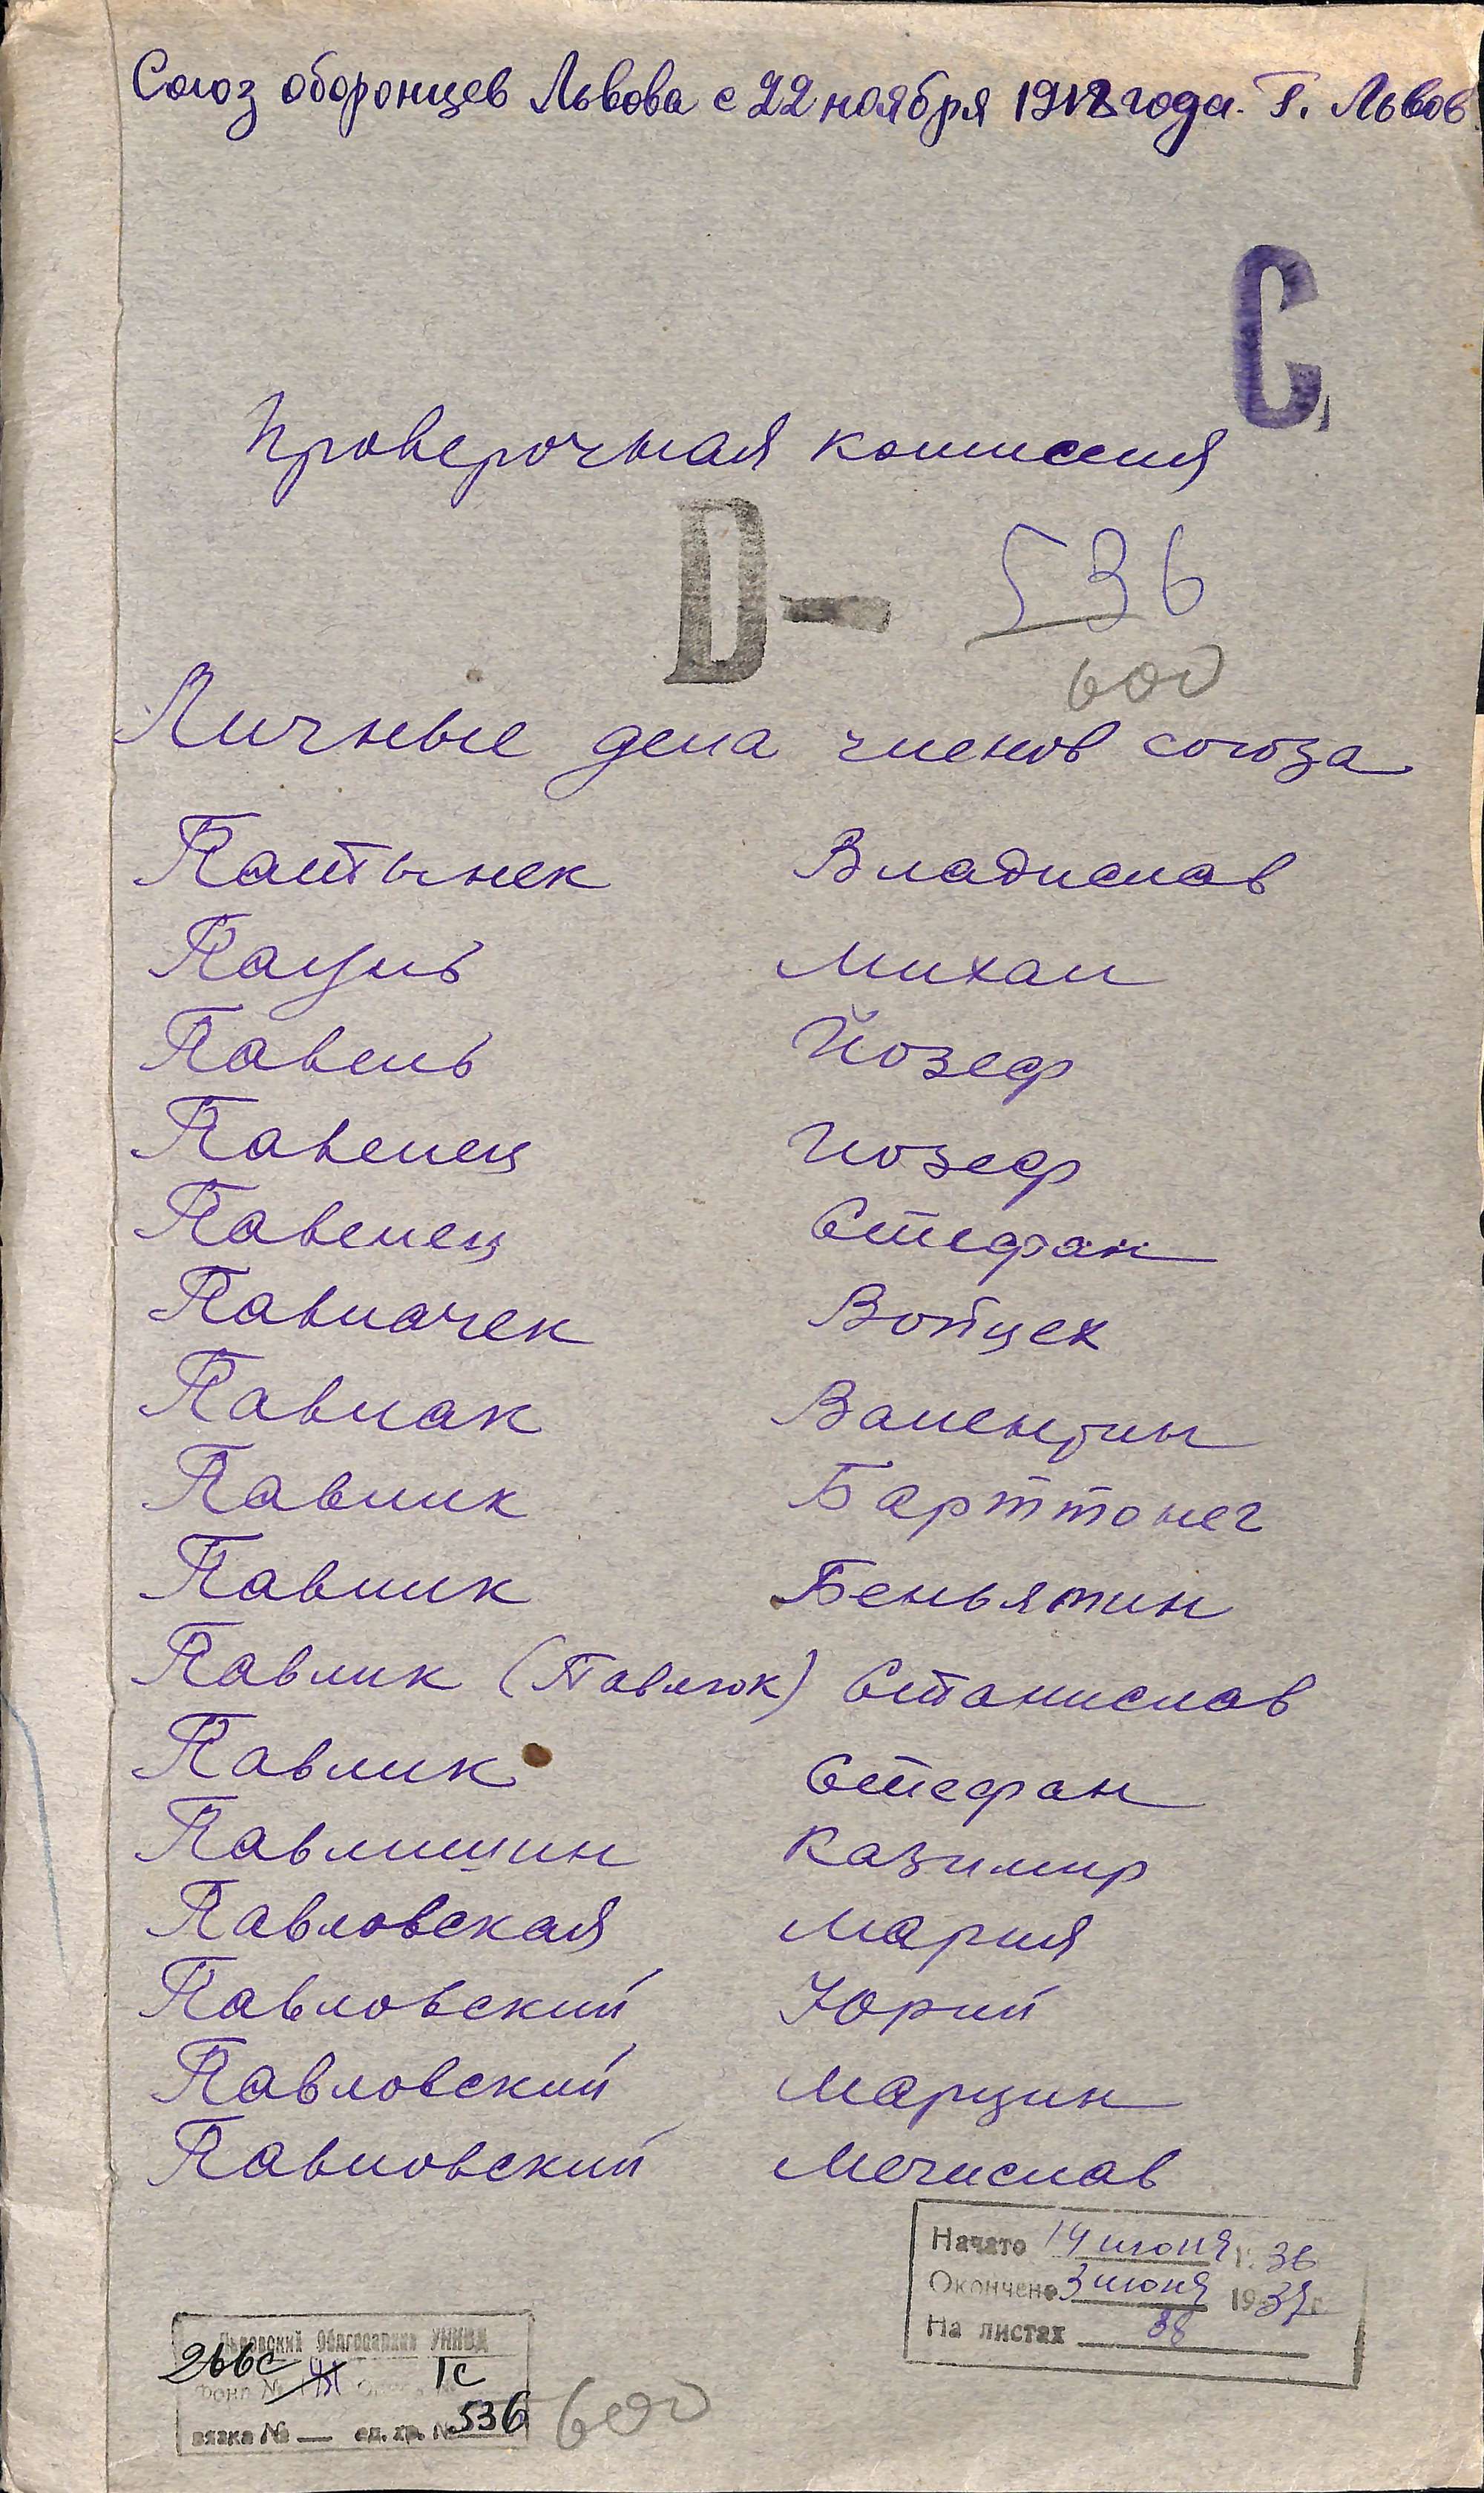 Союз оборонцев Львова с 22 ноября 1918 года. Г. Львов
С
Проверочная комиссия
D— 536
600
Личные дела членов союза
Паштынек Владислав
Пауль Михал
Павель Йозеф
Павелец Йозеф
Павелец Стефан
Павлачек Войцех
Павлак Валентин
Павлик
Павлик Беньямин
Павлик (Павлюк) Станислав
Павлик Стефан
Павлишин Казимир
Павловская Мария
Павловский Юрий
Павловский Марцин
Павловский Мечислав
Начато 14 июня г. 36
Окончено 3 июня 1937 г.
На листах 38
Львовский Облгосархив УНКВД
266с 1с
фонд №
вязка № — ед. хр. № 536 600